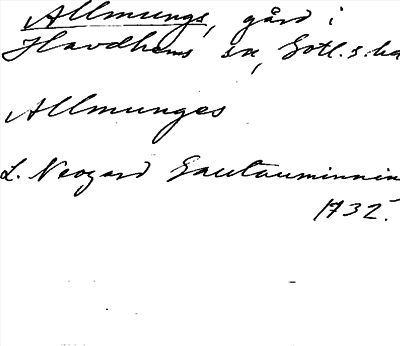 Allmungs, gård i
Havdhems sn, Gotl.s. hd
Allmunges
L. Neogard Gautauminnin
1732.